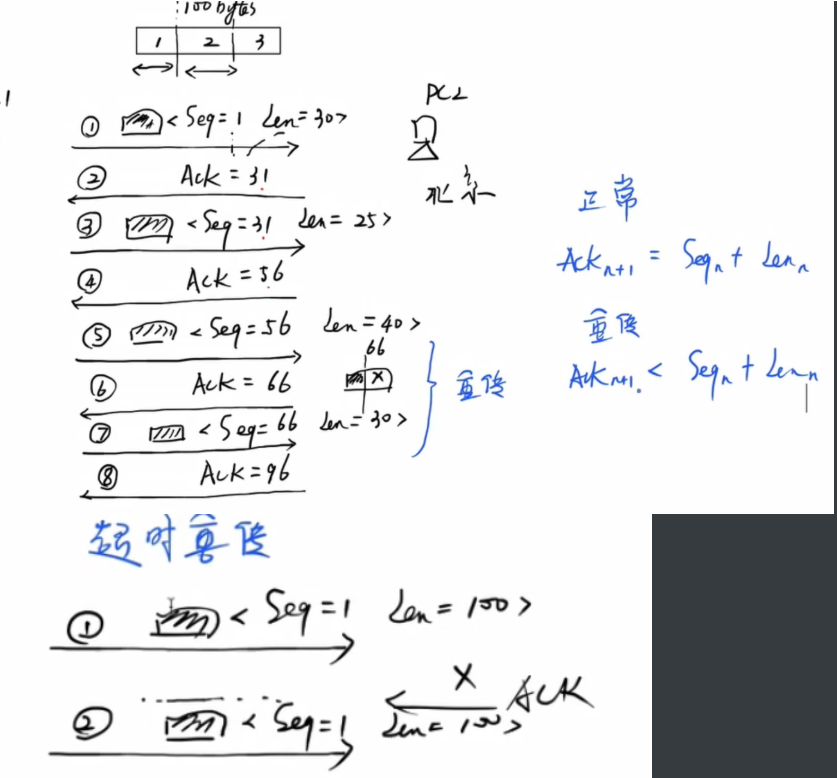 100 bytes
1 2 3
PC2
① < Seq = 1 Len = 30 >
② Ack = 31
③ < Seq = 31 Len = 25 >
④ Ack = 56
⑤ < Seq = 56 Len = 40 >
66
X
⑥ Ack = 66
⑦ < Seq = 66 Len = 30 >
⑧ Ack = 96
重传
正常
Ack n+1 = Seq n + Len n
重传
Ack n+1 < Seq n + Len n
超时重传
① < Seq = 1 Len = 100 >
X ACK
② < Seq = 1 Len = 100 >